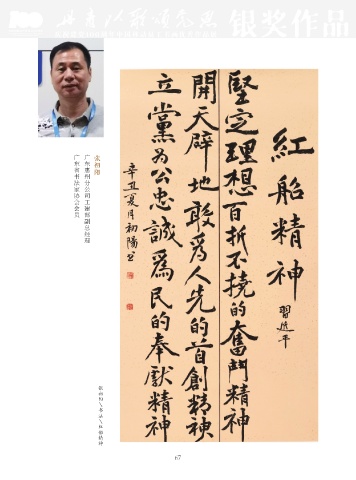 银奖作品
紅船精神
習近平
堅定理想百折不撓的奮鬥精神
開天辟地敢為人先的首創精神
立黨為公忠誠為民的奉獻精神
辛丑夏月初陽書
张初阳
广东惠州分公司工程部副总经理
广东省书法家协会会员
67